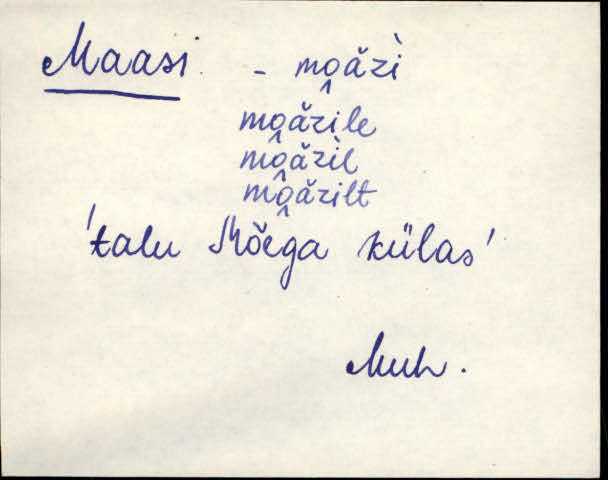 Maasi - mo̭ăzì
mo̭ăzile
mo̭ăzìl
mo̭ăzilt
'talu Mõega külas'
Muh.